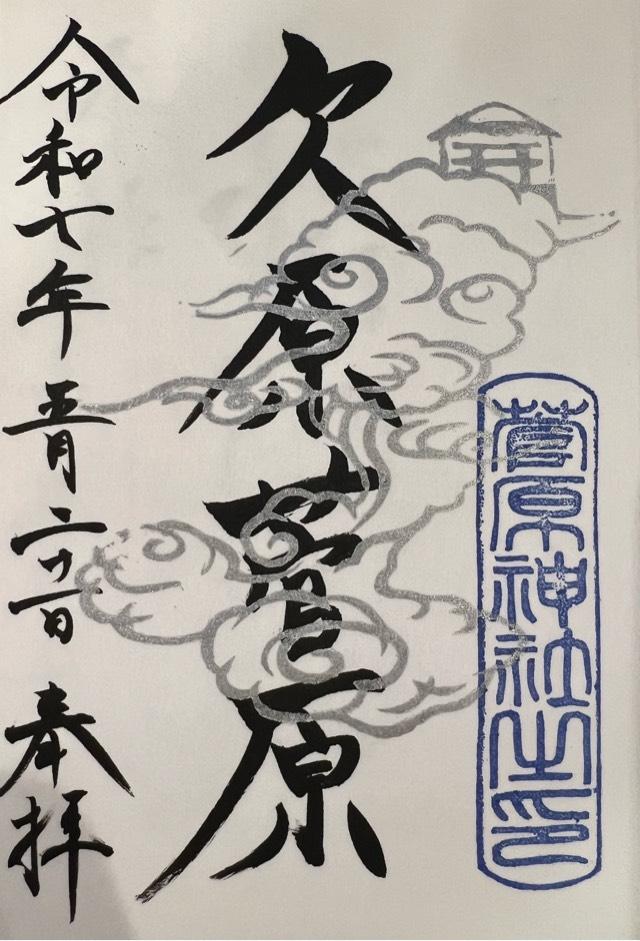 菅原神社之印
久原菅原
令和七年五月二十一日 奉拝